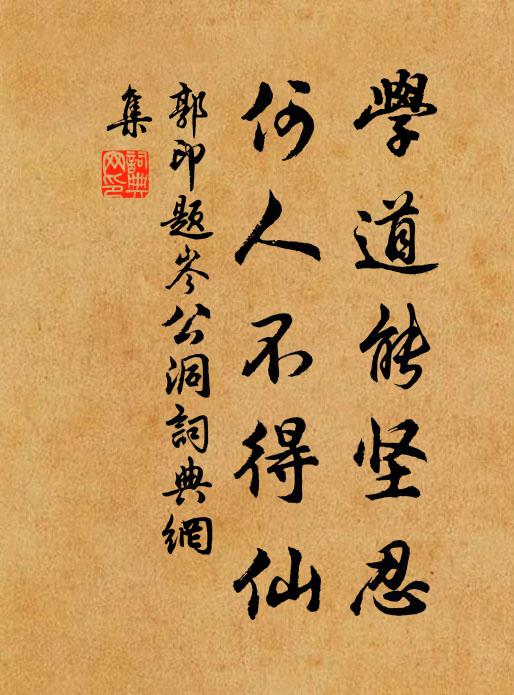 學道能坚忍
何人不得仙
郭印題岑公洞詞典網
集
詞典
网印